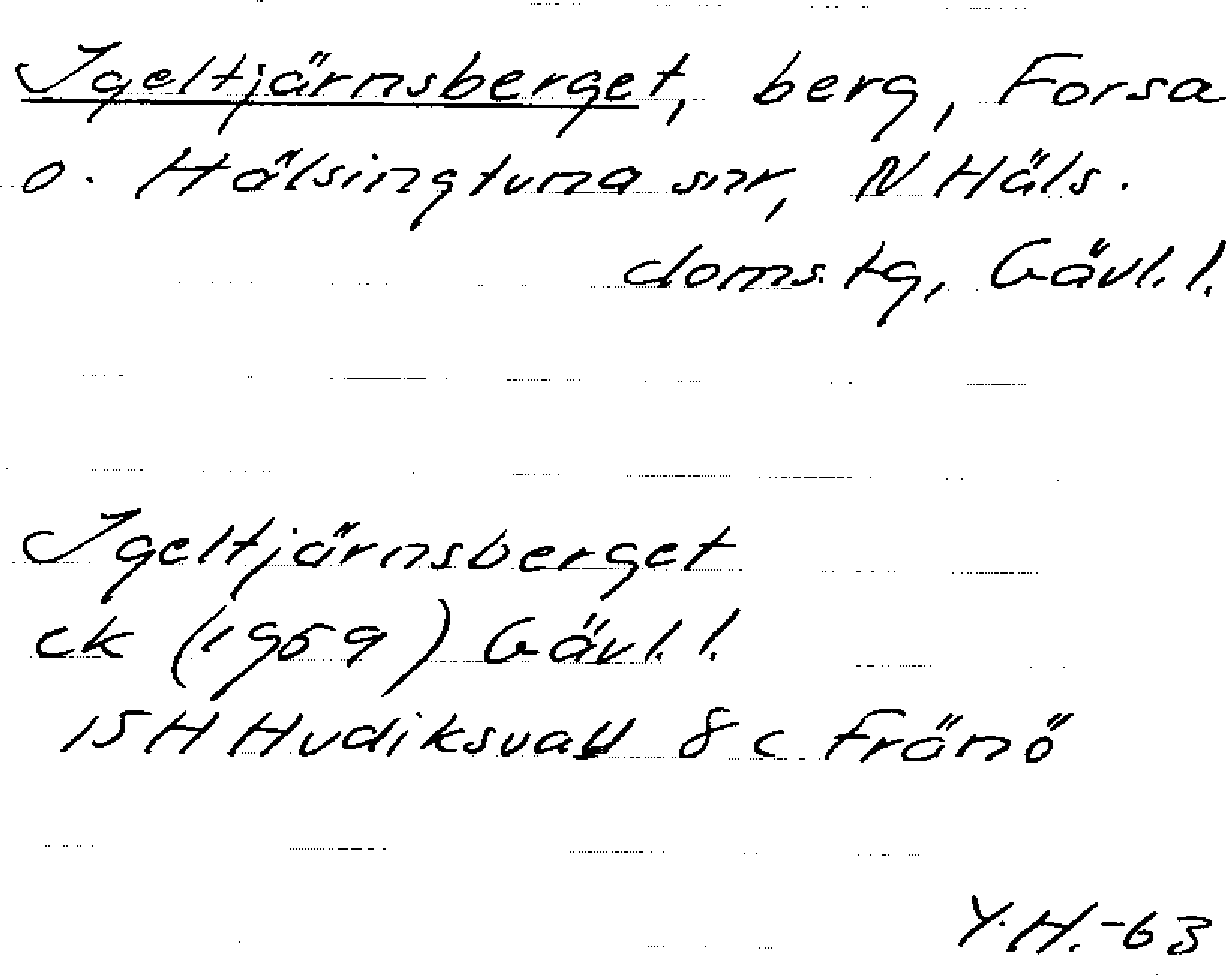 Igeltjärnsberget, berg, Forsa
o. Hälsingtuna snr, N Häls.
domstg, Gävl. l.
Igeltjärnsberget
ek (1959) Gävl. l.
15H Hudiksvall 8c Frönö
Y.H.-63